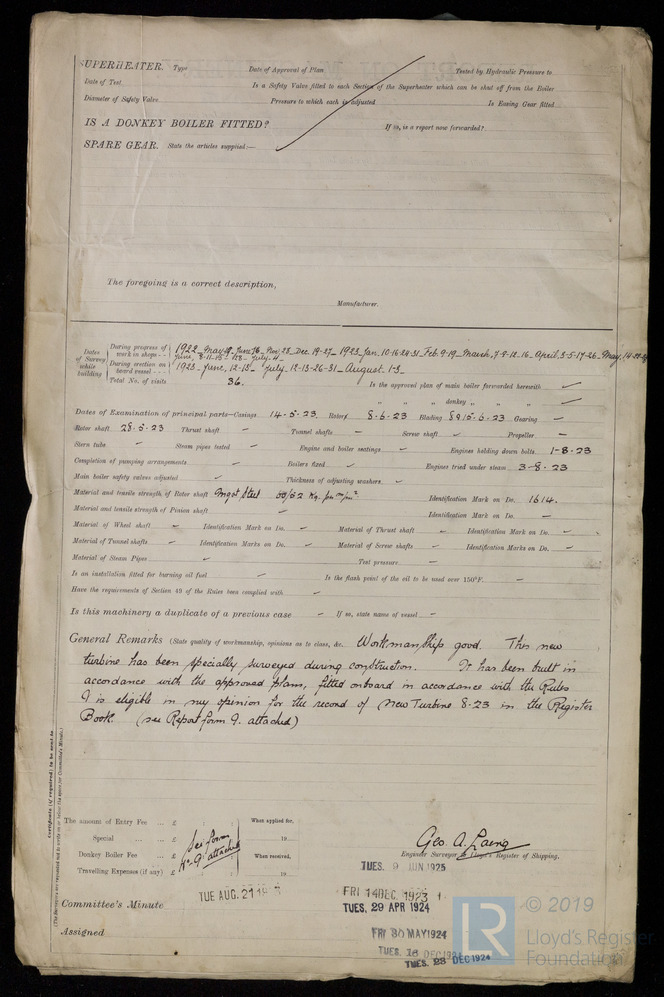 SUPERHEATER. Type Date of Approval of Plan Tested by Hydraulic Pressure to
Date of Test Is a Safety Valve fitted to each Section of the Superheater which can be shut off from the Boiler
Diameter of Safety Valve Pressure to which each is adjusted Is Easing Gear fitted
IS A DONKEY BOILER FITTED? If so, is a report now forwarded?
SPARE GEAR. State the articles supplied:—
The foregoing is a correct description,
Manufacturer.
Dates of Survey while building
During progress of work in shops - - 1922 - May 19 - June 16 - Nov. 28 - Dec. 19-27 - 1923 - Jan. 10-16-24-31 - Feb. 9-19 - March, 7-9-12-16 - April 3-5-17-26 - May,
June,
During erection on board vessel - - - 1923 - June, 12-15 - July, 12-13-26-31 - August 1-3
Total No. of visits 36. Is the approved plan of main boiler forwarded herewith ✓
" " " donkey " " ✓
Dates of Examination of principal parts—Casings 14-5-23. Rotors 8-6-23 Blading 8 & 15-6-23 Gearing -
Rotor shaft 28-5-23 Thrust shaft - Tunnel shafts - Screw shaft - Propeller -
Stern tube - Steam pipes tested - Engine and boiler seatings - Engines holding down bolts 1-8-23
Completion of pumping arrangements - Boilers fixed - Engines tried under steam 3-8-23
Main boiler safety valves adjusted - Thickness of adjusting washers -
Material and tensile strength of Rotor shaft Ingot Steel 60/62 Kg. per m/m² Identification Mark on Do. 1614.
Material and tensile strength of Pinion shaft - Identification Mark on Do. -
Material of Wheel shaft - Identification Mark on Do. - Material of Thrust shaft - Identification Mark on Do. -
Material of Tunnel shafts - Identification Marks on Do. - Material of Screw shafts - Identification Marks on Do. -
Material of Steam Pipes - Test pressure -
Is an installation fitted for burning oil fuel - Is the flash point of the oil to be used over 150°F. -
Have the requirements of Section 49 of the Rules been complied with -
Is this machinery a duplicate of a previous case - If so, state name of vessel -
General Remarks (State quality of workmanship, opinions as to class, &c. Workmanship good. This new
turbine has been specially surveyed during construction. It has been built in
accordance with the approved plans, fitted onboard in accordance with the Rules
& is eligible in my opinion for the record of New Turbine 8-23 in the Register
Book. (see Report form 9. attached)
Certificate (if required) to be sent to
(The Surveyors are requested not to write on or below the space for Committee's Minute.)
The amount of Entry Fee ... £ When applied for,
Special ... ... £ see form 19
Donkey Boiler Fee ... £ No 9 attached When received,
Travelling Expenses (if any) £ 19
Geo. A. Laing
Engineer Surveyor to Lloyd's Register of Shipping.
TUES. 9 JUN 1925
TUE AUG. 21 1923
FRI 14 DEC 1923
Committee's Minute TUES. 29 APR 1924
Assigned FRI 30 MAY 1924
TUES. 16 DEC 1924
TUES. 23 DEC 1924
LR © 2019
Lloyd's Register
Foundation